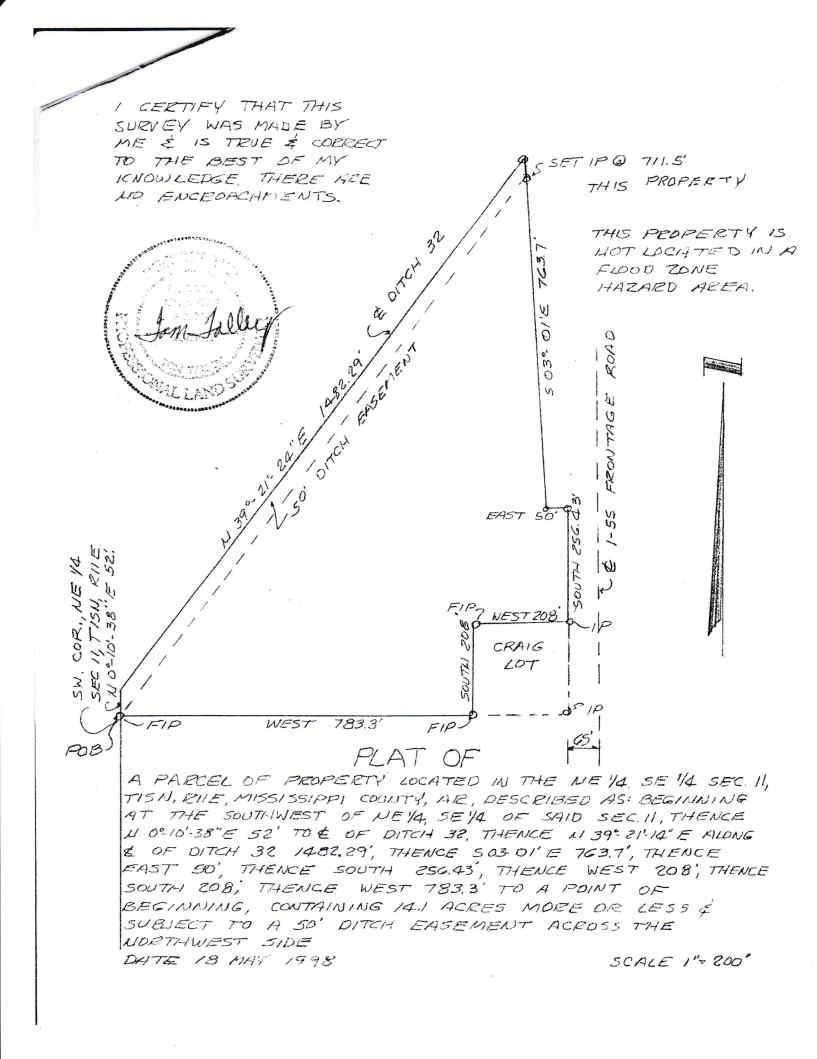 I CERTIFY THAT THIS
SURVEY WAS MADE BY
ME & IS TRUE & CORRECT
TO THE BEST OF MY
KNOWLEDGE. THERE ARE
NO ENCROACHMENTS.
SET IP @ 711.5'
THIS PROPERTY
THIS PROPERTY IS
NOT LOCATED IN A
FLOOD ZONE
HAZARD AREA.
PROFESSIONAL LAND SURVEYOR
Tom Talley
℄ DITCH 32
N 39°-21'-24"E 1482.29'
50' DITCH EASEMENT
S 03°-01'E 763.7'
℄ I-55 FRONTAGE ROAD
EAST 50'
SOUTH 256.43'
SW. COR., NE 1/4
SEC 11, T15N, R11E
N 0°-10'-38"E 52'
FIP
WEST 208'
IP
CRAIG
LOT
SOUTH 208'
IP
POB
FIP
WEST 783.3'
FIP
65'
PLAT OF
A PARCEL OF PROPERTY LOCATED IN THE NE 1/4 SE 1/4 SEC. 11,
T15N, R11E, MISSISSIPPI COUNTY, AR, DESCRIBED AS: BEGINNING
AT THE SOUTHWEST OF NE 1/4, SE 1/4 OF SAID SEC. 11, THENCE
N 0°-10'-38"E 52' TO ℄ OF DITCH 32, THENCE N 39°-21'-14"E ALONG
℄ OF DITCH 32 1482.29', THENCE S 03-01'E 763.7', THENCE
EAST 50', THENCE SOUTH 256.43', THENCE WEST 208', THENCE
SOUTH 208', THENCE WEST 783.3' TO A POINT OF
BEGINNING, CONTAINING 14.1 ACRES MORE OR LESS &
SUBJECT TO A 50' DITCH EASEMENT ACROSS THE
NORTHWEST SIDE
DATE 18 MAY 1998
SCALE 1"= 200'